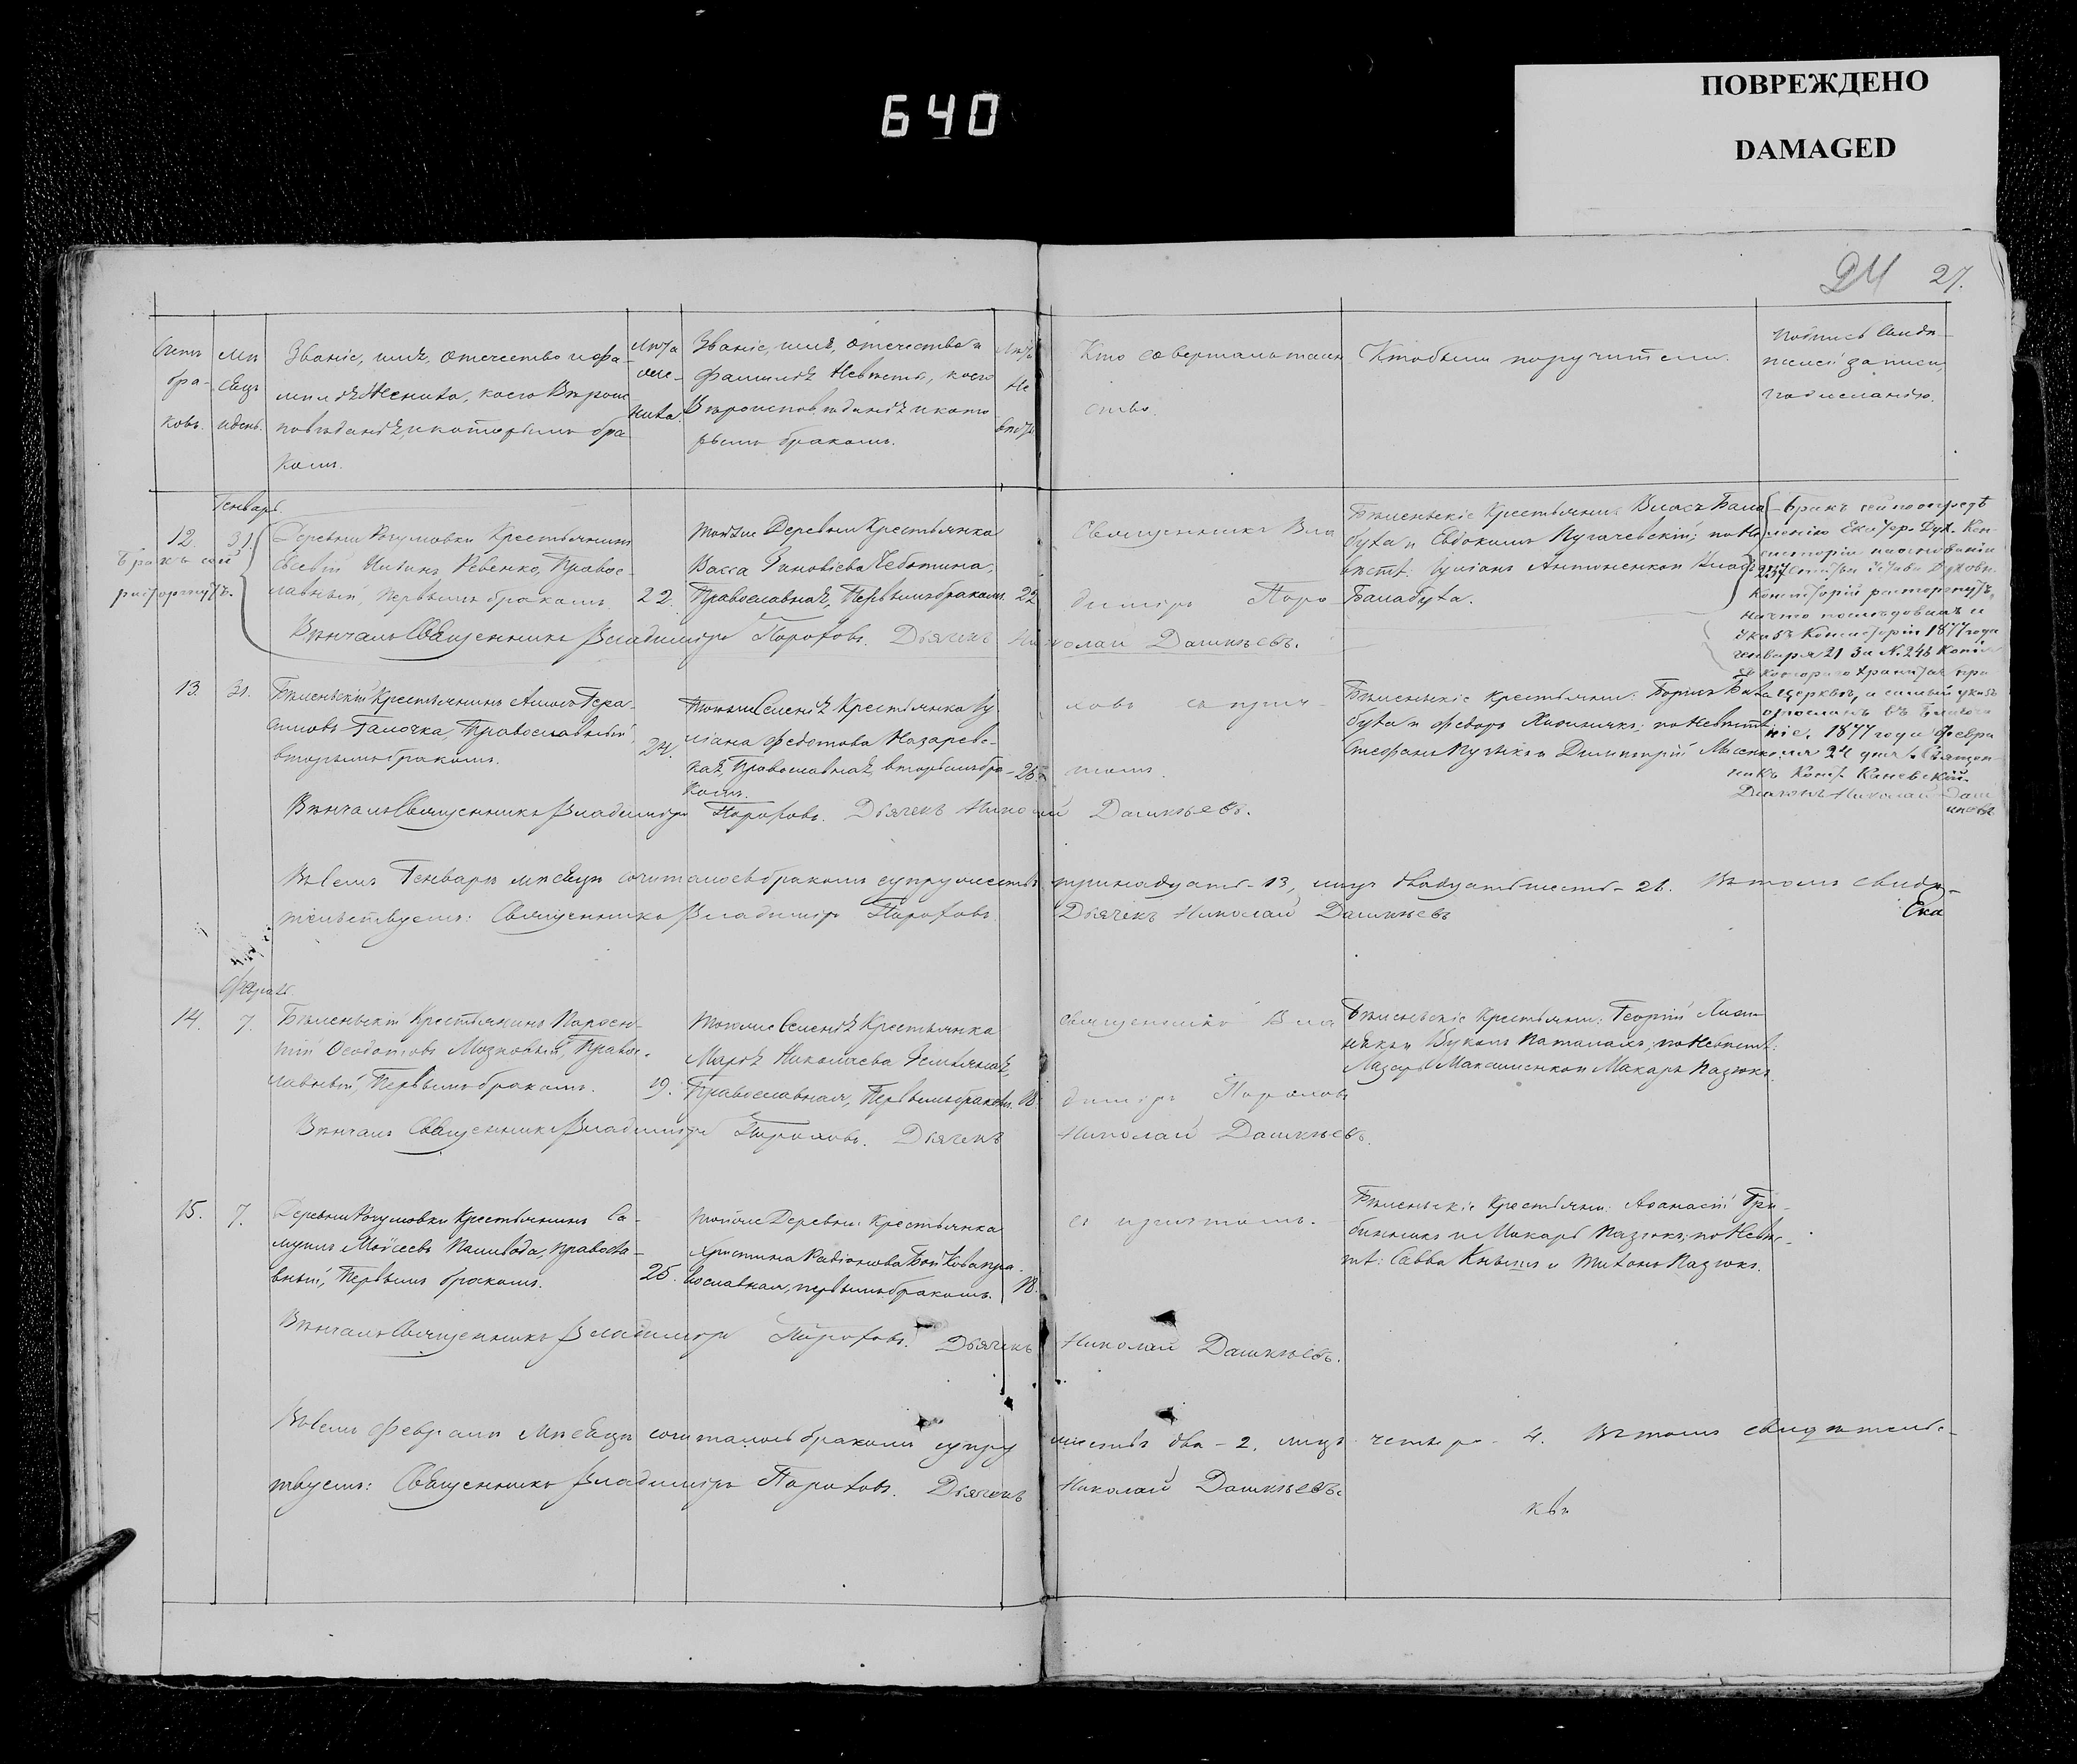 640
ПОВРЕЖДЕНО
DAMAGED
24 27.
Счетъ бра- ковъ.
Мѣ сяцъ и день.
Званіе, имя, отечество и фа-
милія Жениха, коего Вѣроис
повѣданія, и которымъ бра
комъ.
Лѣта
Же-
ниха.
Званіе, имя, отечество и
фамилія Невѣсты, коего
Вѣроисповѣданія и кото
рымъ бракомъ.
Лѣта
Не
вѣсты
Кто совершалъ таин
ство.
Кто были поручители.
Подпись Свидѣ-
телей записи,
по желанію.
Генварь.
12. 31.
Бракъ сей
расторгнутъ.
Деревни Крестьянинъ
Евсевій Ревенко, Правос-
лавный, Первымъ бракомъ.
22.
Тойже Деревни Крестьянка
Васса Зиновіева Чеботина,
Православная, Первымъ бракомъ.
22
Священникъ Вла
диміръ Поро
Бѣленьскіе Крестьяне: Власъ Бала
буха и Евдокимъ Пугачевскій; по Не
вѣстѣ: Антоненко и
Балабуха.
Бракъ сей по опредѣ
ленію Екатер. Дух. Кон
систоріи на основаніи
Устава Духовн.
Консисторій расторгнутъ,
на что послѣдовалъ и
указъ Консисторіи 1877 года
Генваря 21 за № 246 копія
съ котораго хранится при
церкви, а самый указъ
отосланъ въ Благочи
ніе. 1877 года Февра
ля 24 дня. Священ-
никъ Каневскій.
Дьячекъ Николай Даш
кѣевъ
Вѣнчалъ Священникъ Владиміръ Пороховъ. Дьячекъ Николай Дашкѣевъ.
13. 31.
Бѣленьскій Крестьянинъ Гера-
симовъ Галочка, Православный,
вторымъ бракомъ.
24.
Тогоже Селенія Крестьянка Іу
ліана Федотова Назаревс-
кая, Православная, вторымъ бра-
комъ.
26
ховъ съ прич-
томъ.
Бѣленьскіе Крестьяне: Борисъ Бала
буха и Федоръ по Невѣстѣ:
Стефанъ и Димитрій
Вѣнчалъ Священникъ Владиміръ Пороховъ. Дьячекъ Николай Дашкѣевъ.
Въ семъ Генварѣ мѣсяцѣ сочеталось бракомъ супружествъ тринадцать - 13, лицъ двадцать шесть - 26. Въ томъ свидѣ-
тельствуемъ: Священникъ Владиміръ Пороховъ. Дьячекъ Николай Дашкѣевъ
Ека
Февраль
14. 7.
Бѣленьскій Крестьянинъ Парѳен-
тій Ѳеодотовъ Мозковый, Правос-
лавный, Первымъ бракомъ.
19.
Тогоже Селенія Крестьянка
Марѳа Николаева
Православная, Первымъ бракомъ.
18.
Священникъ Вла
диміръ Пороховъ
Бѣленьскіе Крестьяне: Георгій
и Вуколъ по Невѣстѣ:
Лазарь Максименко и Макаръ Назюкъ.
Вѣнчалъ Священникъ Владиміръ Пороховъ. Дьячекъ Николай Дашкѣевъ.
15. 7.
Деревни Крестьянинъ Са-
муилъ Моѵсеевъ Паливода, правосла-
вный, Первымъ бракомъ.
25.
Тойже Деревни Крестьянка
Христина Радіонова Бойкова, пра-
вославная, первымъ бракомъ.
18.
съ причтомъ.
Бѣленьскіе Крестьяне: Аѳанасій Гре-
бинникъ и Макаръ Назюкъ; по Невѣс-
тѣ: Савва Кнышъ и Тихонъ Назюкъ.
Вѣнчалъ Священникъ Владиміръ Пороховъ. Дьячекъ Николай Дашкѣевъ.
Въ семъ Февралѣ мѣсяцѣ сочеталось бракомъ супружествъ два - 2, лицъ четыре - 4. Въ томъ свидѣтельс-
твуемъ: Священникъ Владиміръ Пороховъ. Дьячекъ Николай Дашкѣевъ.